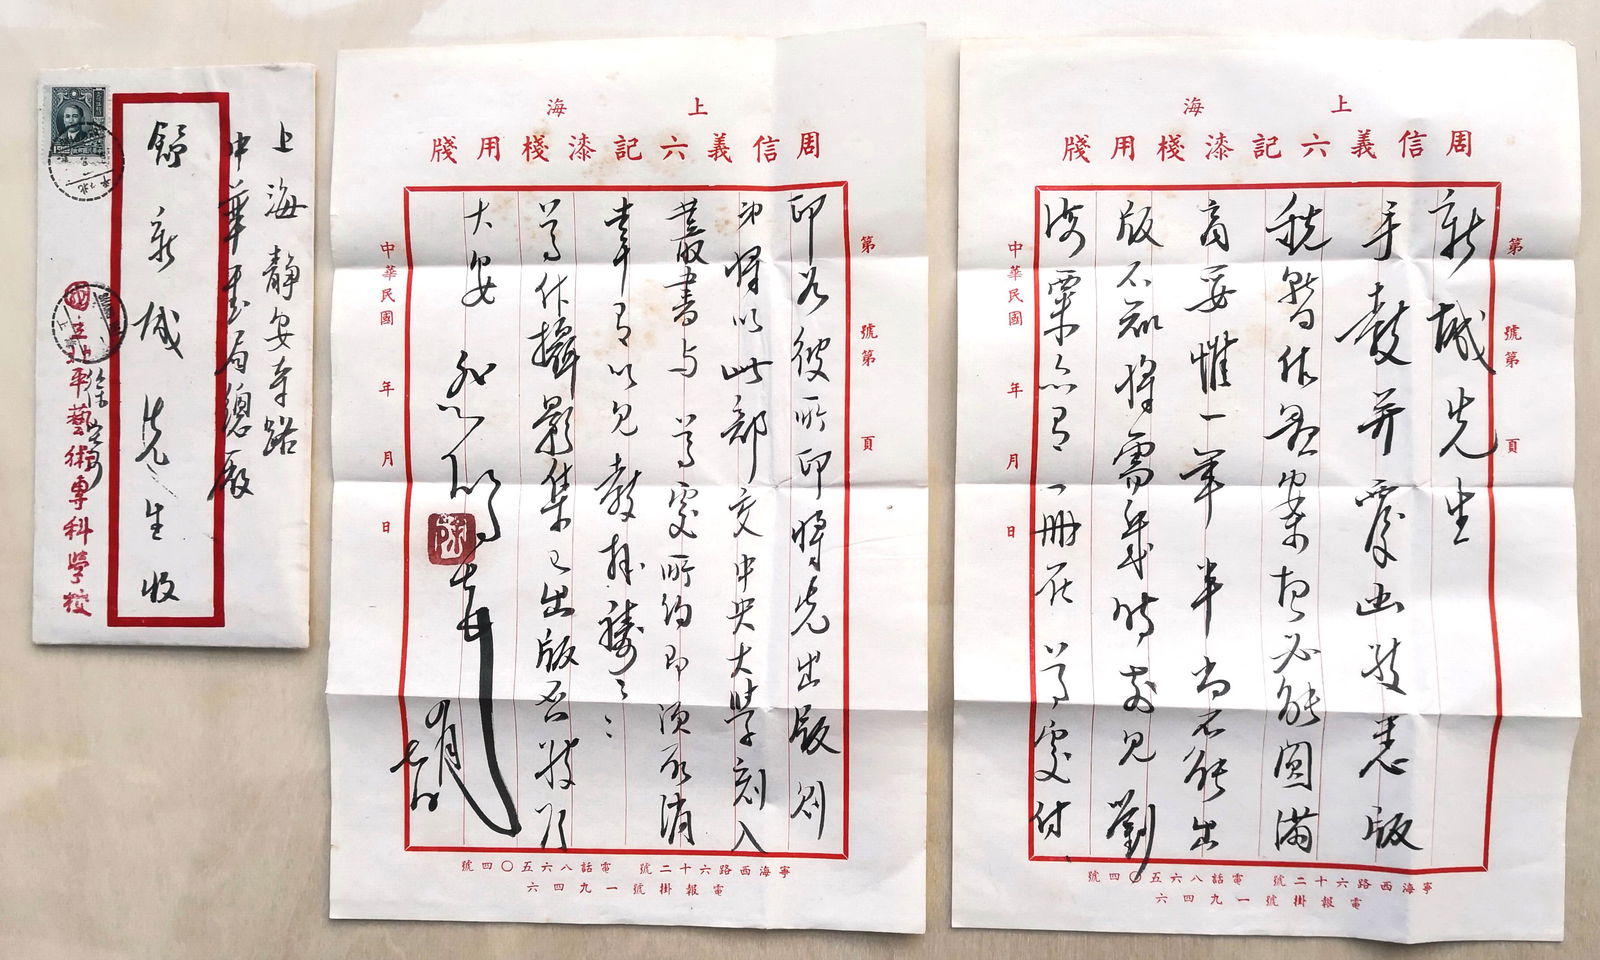 上海
周信義六記漆棧用牋
第 號第 頁
新城先生
手教并函敬悉版
税暫作懸案想必能圓滿
商妥惟一年半尚不能出
版不知將需幾時前見劉
海粟亦有一冊在尊處付
中華民國 年 月 日
寧海西路六十二號 電話八六五〇四號
電報掛號一九四六
上海
周信義六記漆棧用牋
第 號第 頁
印如彼所印將先出版則
弟將以此部交中央大學刻入
叢書与尊處所約即須取消
幸有以見教拜禱々々
尊作攝影集已出版否敬頌
大安 悲鴻
中華民國 年 月 日
寧海西路六十二號 電話八六五〇四號
電報掛號一九四六
上海靜安寺路
中華書局總廠
舒新城先生收
國立北平藝術專科學校
徐寄